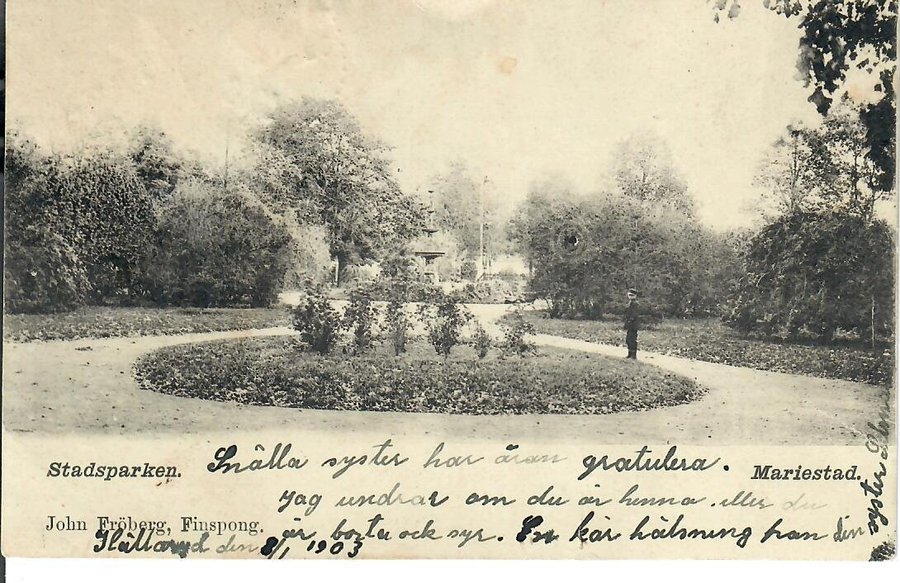 Stadsparken.
Mariestad.
John Fröberg, Finspong.
Snälla syster har äran gratulera.
Jag undrar om du är hemma eller du
är borta och syr. En kär hälsning från din
syster
Hällaryd den 8/1 1903